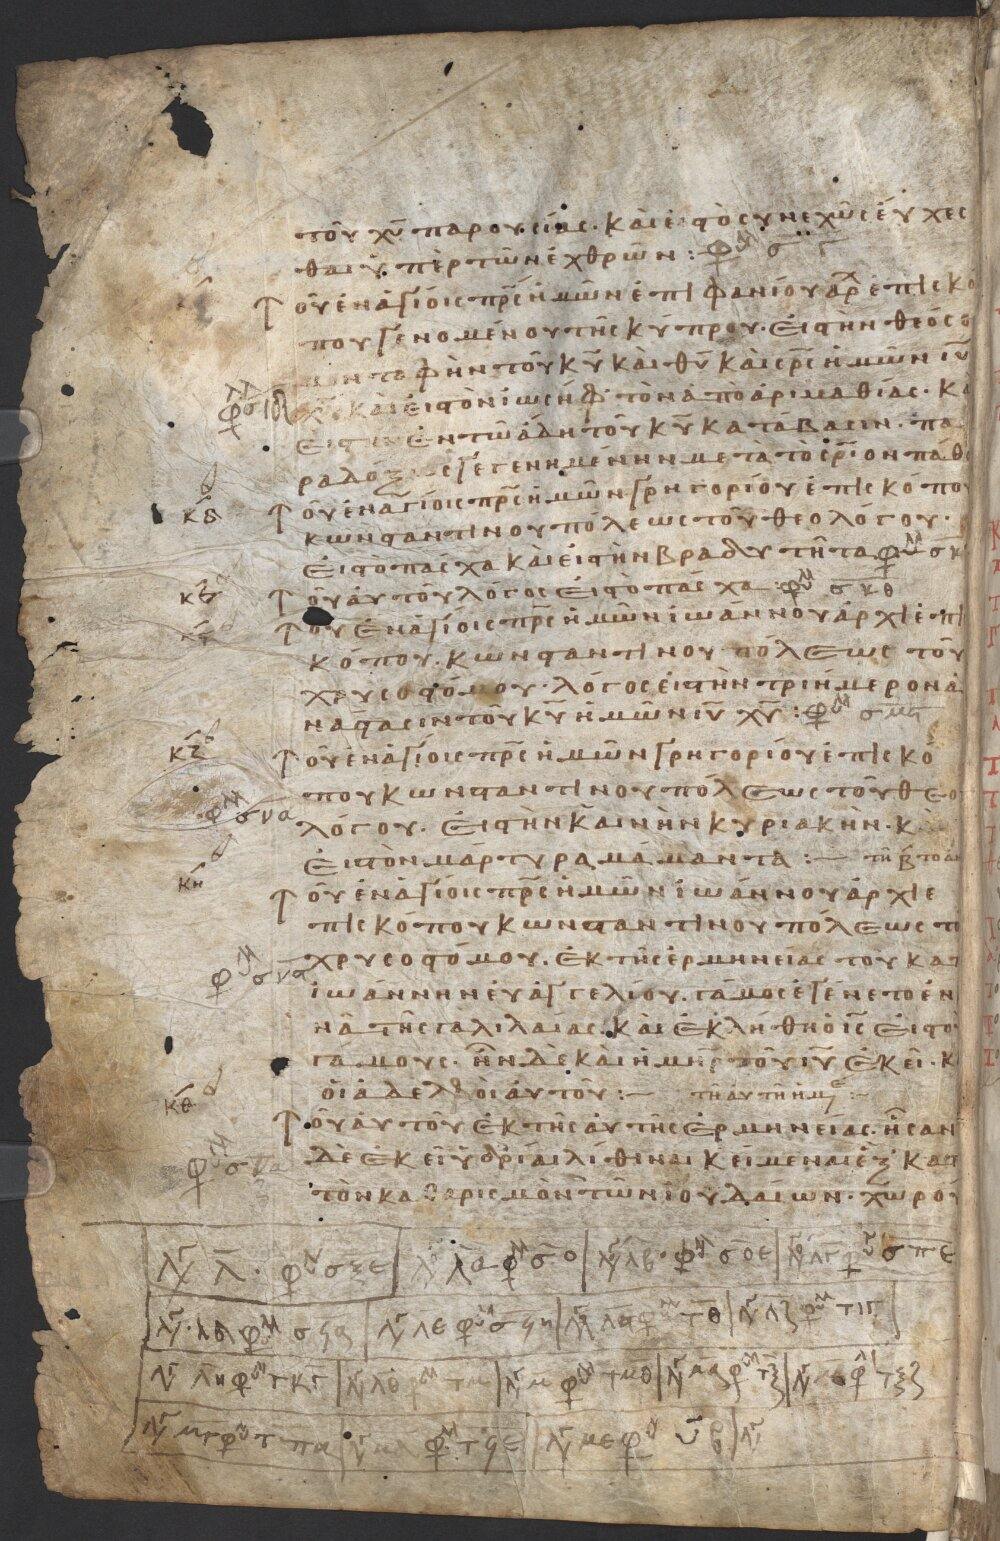 τοῦ χῡ παρουσίας· καὶ εἰς τὸ συνεχῶς εὔχεσ
θαι ὑπὲρ τῶν ἐχθρῶν : φυλλ σ γ
Τοῦ ἐν ἁγίοις πρ̅ς ἡμῶν ἐπιφανίου ἀρχ ἐπισκό
που γενομένου τῆς κύπρου· εἰς τὴν θεόσω
μον ταφὴν τοῦ κ̅υ καὶ θ̅υ καὶ σ̅ρ̅ς ἡμῶν ι̅υ
χ̅υ· καὶ εἰς τὸν ἰωσὴφ τὸν ἀπὸ ἀριμαθίας· κὰ
εἰς τὴν ἐν τῶ ἅδη τοῦ κ̅υ κατάβασιν· πα
ραδόξως γεγενημένην μετὰ τὸ σ̅ρ̅ιον πάθο
κδ Τοῦ ἐν ἁγίοις πρ̅ς ἡμῶν γρηγορίου ἐπισκόπου
κωνσταντινουπόλεως τοῦ θεολόγου·
εἰς τὸ πάσχα καὶ εἰς τὴν βραδυτῆτα φυλλ σ κ
κε Τοῦ αὐτοῦ λόγος εἰς τὸ πάσχα φυλλ σκθ
κς Τοῦ ἐν ἁγίοις πρ̅ς ἡμῶν ἰωάννου ἀρχιεπι
κόπου κωνσταντινουπόλεως τοῦ
χρυσοστόμου· λόγος εἰς τὴν τριήμερον ἀ
νάστασιν τοῦ κ̅υ ἡμῶν ι̅υ χ̅υ : φυλλ σμ
κζ Τοῦ ἐν ἁγίοις πρ̅ς ἡμῶν γρηγορίου ἐπισκό
που κωνσταντινουπόλεως τοῦ θεο
φυλλ σνα λόγου· εἰς τὴν καινὴν κυριακὴν· κ
εἰς τὸν μάρτυρα μάμαντα :
κη Τοῦ ἐν ἁγίοις πρ̅ς ἡμῶν ἰωάννου ἀρχιε
πισκόπου κωνσταντινουπόλεως τ
φυλλ σνα χρυσοστόμου· ἐκ τῆς ἑρμηνείας τοῦ κατ
ἰωάννην εὐαγγελίου· γάμος ἐγένετο ἐν
νᾶ τῆς γαλιλαίας· καὶ ἐκλήθη ὁ ι̅ς εἰς τοὺ
γάμους· ἦν δὲ καὶ ἡ μη̅ρ τοῦ ι̅υ ἐκεῖ· κ
κθ οἱ ἀδελφοὶ αὐτοῦ : τῆ αὐτῆ ἡμ
Τοῦ αὐτοῦ ἐκ τῆς αὐτῆς ἑρμηνείας· ἦσαν
φυλλ σνα δὲ ἐκεῖ ὑδρίαι λίθιναι κείμεναι ἓξ κατ
τὸν καθαρισμὸν τῶν ἰουδαίων· χωροῦ
λγ λ· φυλλ σξε | λγ λα φυλλ σο | λγ λβ· φυλλ σοε | λγ λγ φυλλ σπε
λγ· λδ φυλλ σϟα | λγ λε φυλλ σϟη | λγ λς φυλλ τθ | λγ λζ φυλλ τιγ
λγ λη φυλλ τκγ | λγ λθ φυλλ τμ | λγ μ φυλλ τμθ | λγ μα φυλλ τξ | φυλλ τξζ
λγ μγ φυλλ τπα | φυλλ τϟε | λγ με φυλλ υβ | λγ